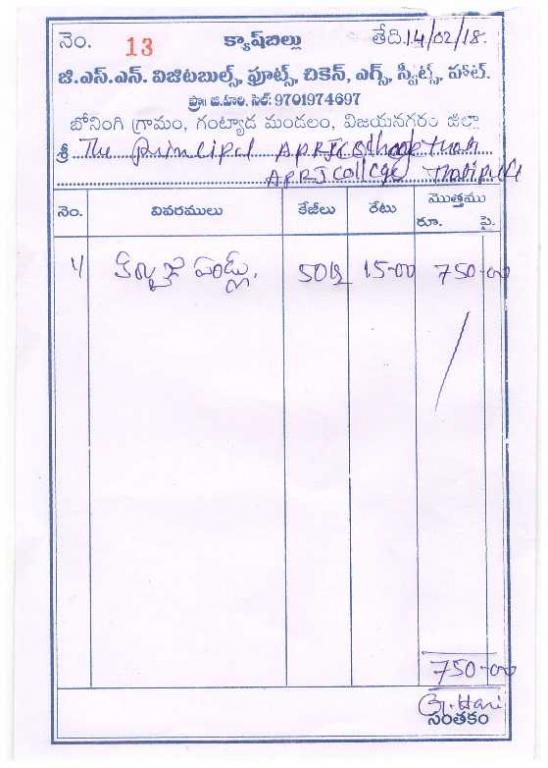 నెం. 13 క్యాష్‌బిల్లు తేది.14/02/18.
జి.ఎస్.ఎన్. విజిటబుల్స్, ఫ్రూట్స్, చికెన్, ఎగ్స్, స్వీట్స్, హాట్.
ప్రొః జి.హరి, సెల్: 9701974697
బోనింగి గ్రామం, గంట్యాడ మండలం, విజయనగరం జిల్లా
శ్రీ The Principal APRJC
APRJ College Thatipudi
నెం. వివరములు కేజీలు రేటు మొత్తము
రూ. పై.
పండ్లు. 15-00 750-00
750-00
G. Hari
సంతకం